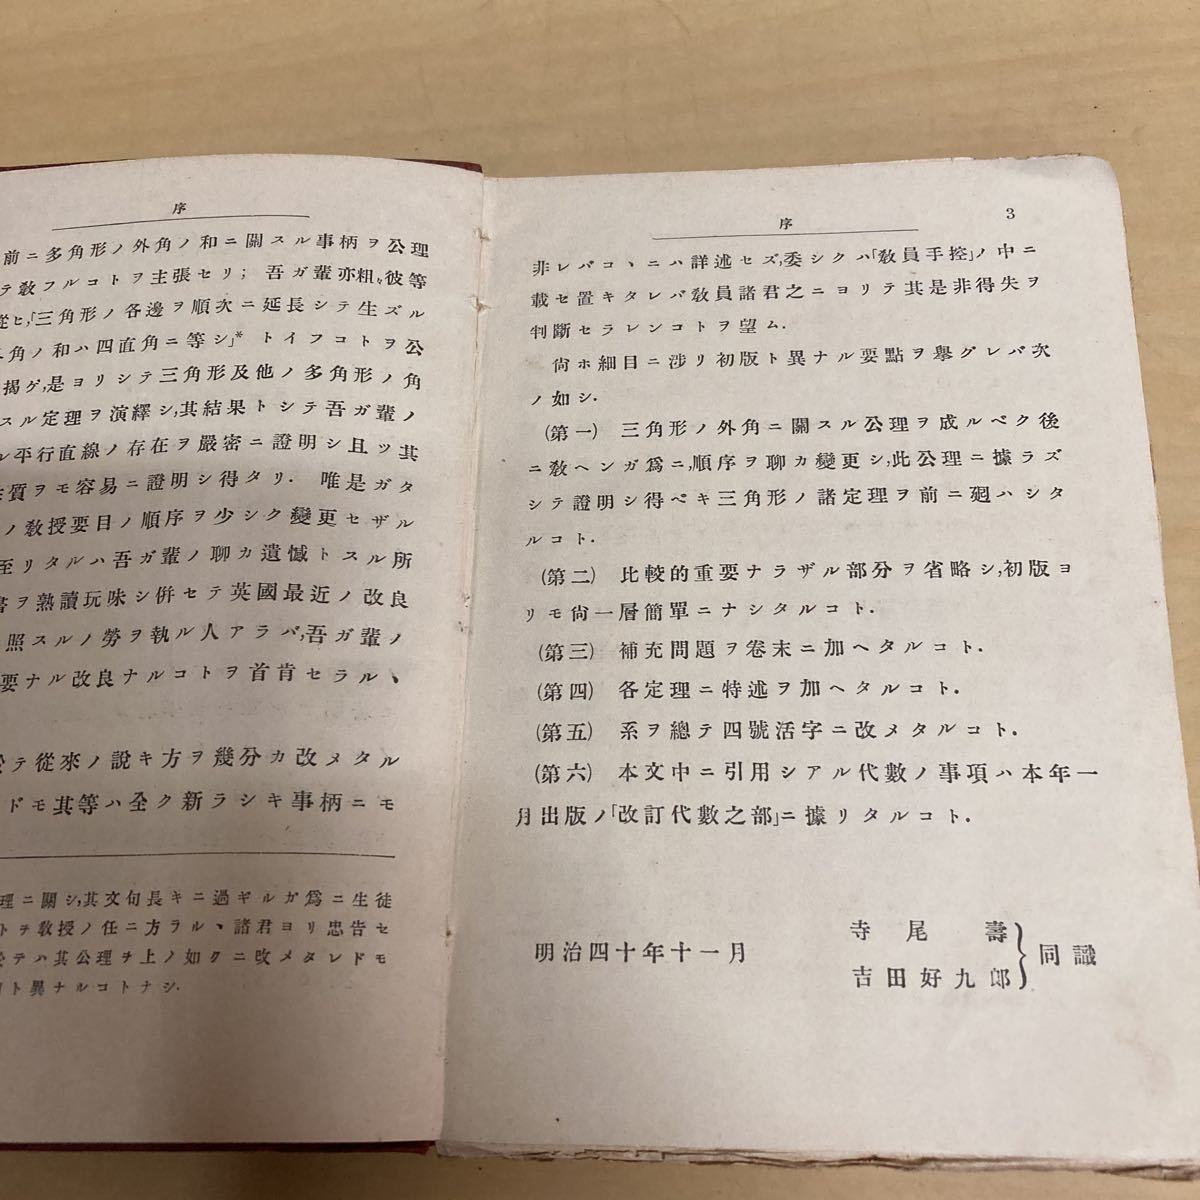 序
前ニ多角形ノ外角ノ和ニ關スル事柄ヲ公理
テ敎フルコトヲ主張セリ; 吾ガ輩亦粗〻彼等
從ヒ,「三角形ノ各邊ヲ順次ニ延長シテ生ズル
角ノ和ハ四直角ニ等シ」* トイフコトヲ公
揭ゲ,是ヨリシテ三角形及他ノ多角形ノ角
スル定理ヲ演繹シ,其結果トシテ吾ガ輩ノ
ル平行直線ノ存在ヲ嚴密ニ證明シ且ツ其
質ヲモ容易ニ證明シ得タリ. 唯是ガタ
ノ敎授要目ノ順序ヲ少シク變更セザル
至リタルハ吾ガ輩ノ聊カ遺憾トスル所
書ヲ熟讀玩味シ併セテ英國最近ノ改良
照スルノ勞ヲ執ル人アラバ,吾ガ輩ノ
要ナル改良ナルコトヲ首肯セラルヽ
テ從來ノ說キ方ヲ幾分カ改メタル
ドモ其等ハ全ク新ラシキ事柄ニモ
理ニ關シ,其文句長キニ過ギルガ爲ニ生徒
トチ敎授ノ任ニ方ラルヽ諸君ヨリ忠告セ
テハ其公理チ上ノ如クニ改メタレドモ
ト異ナルコトナシ.
序
3
非レバコヽニハ詳述セズ,委シクハ「敎員手控」ノ中ニ
載セ置キタレバ敎員諸君之ニヨリテ其是非得失ヲ
判斷セラレンコトヲ望ム.
尙ホ細目ニ涉リ初版ト異ナル要點ヲ擧グレバ次
ノ如シ.
(第一) 三角形ノ外角ニ關スル公理ヲ成ルベク後
ニ敎ヘンガ爲ニ,順序ヲ聊カ變更シ,此公理ニ據ラズ
シテ證明シ得ベキ三角形ノ諸定理ヲ前ニ廻ハシタ
ルコト.
(第二) 比較的重要ナラザル部分ヲ省略シ,初版ヨ
リモ尙一層簡單ニナシタルコト.
(第三) 補充問題ヲ卷末ニ加ヘタルコト.
(第四) 各定理ニ特述ヲ加ヘタルコト.
(第五) 系ヲ總テ四號活字ニ改メタルコト.
(第六) 本文中ニ引用シアル代數ノ事項ハ本年一
月出版ノ「改訂代數之部」ニ據リタルコト.
明治四十年十一月
寺尾壽
吉田好九郞
同識